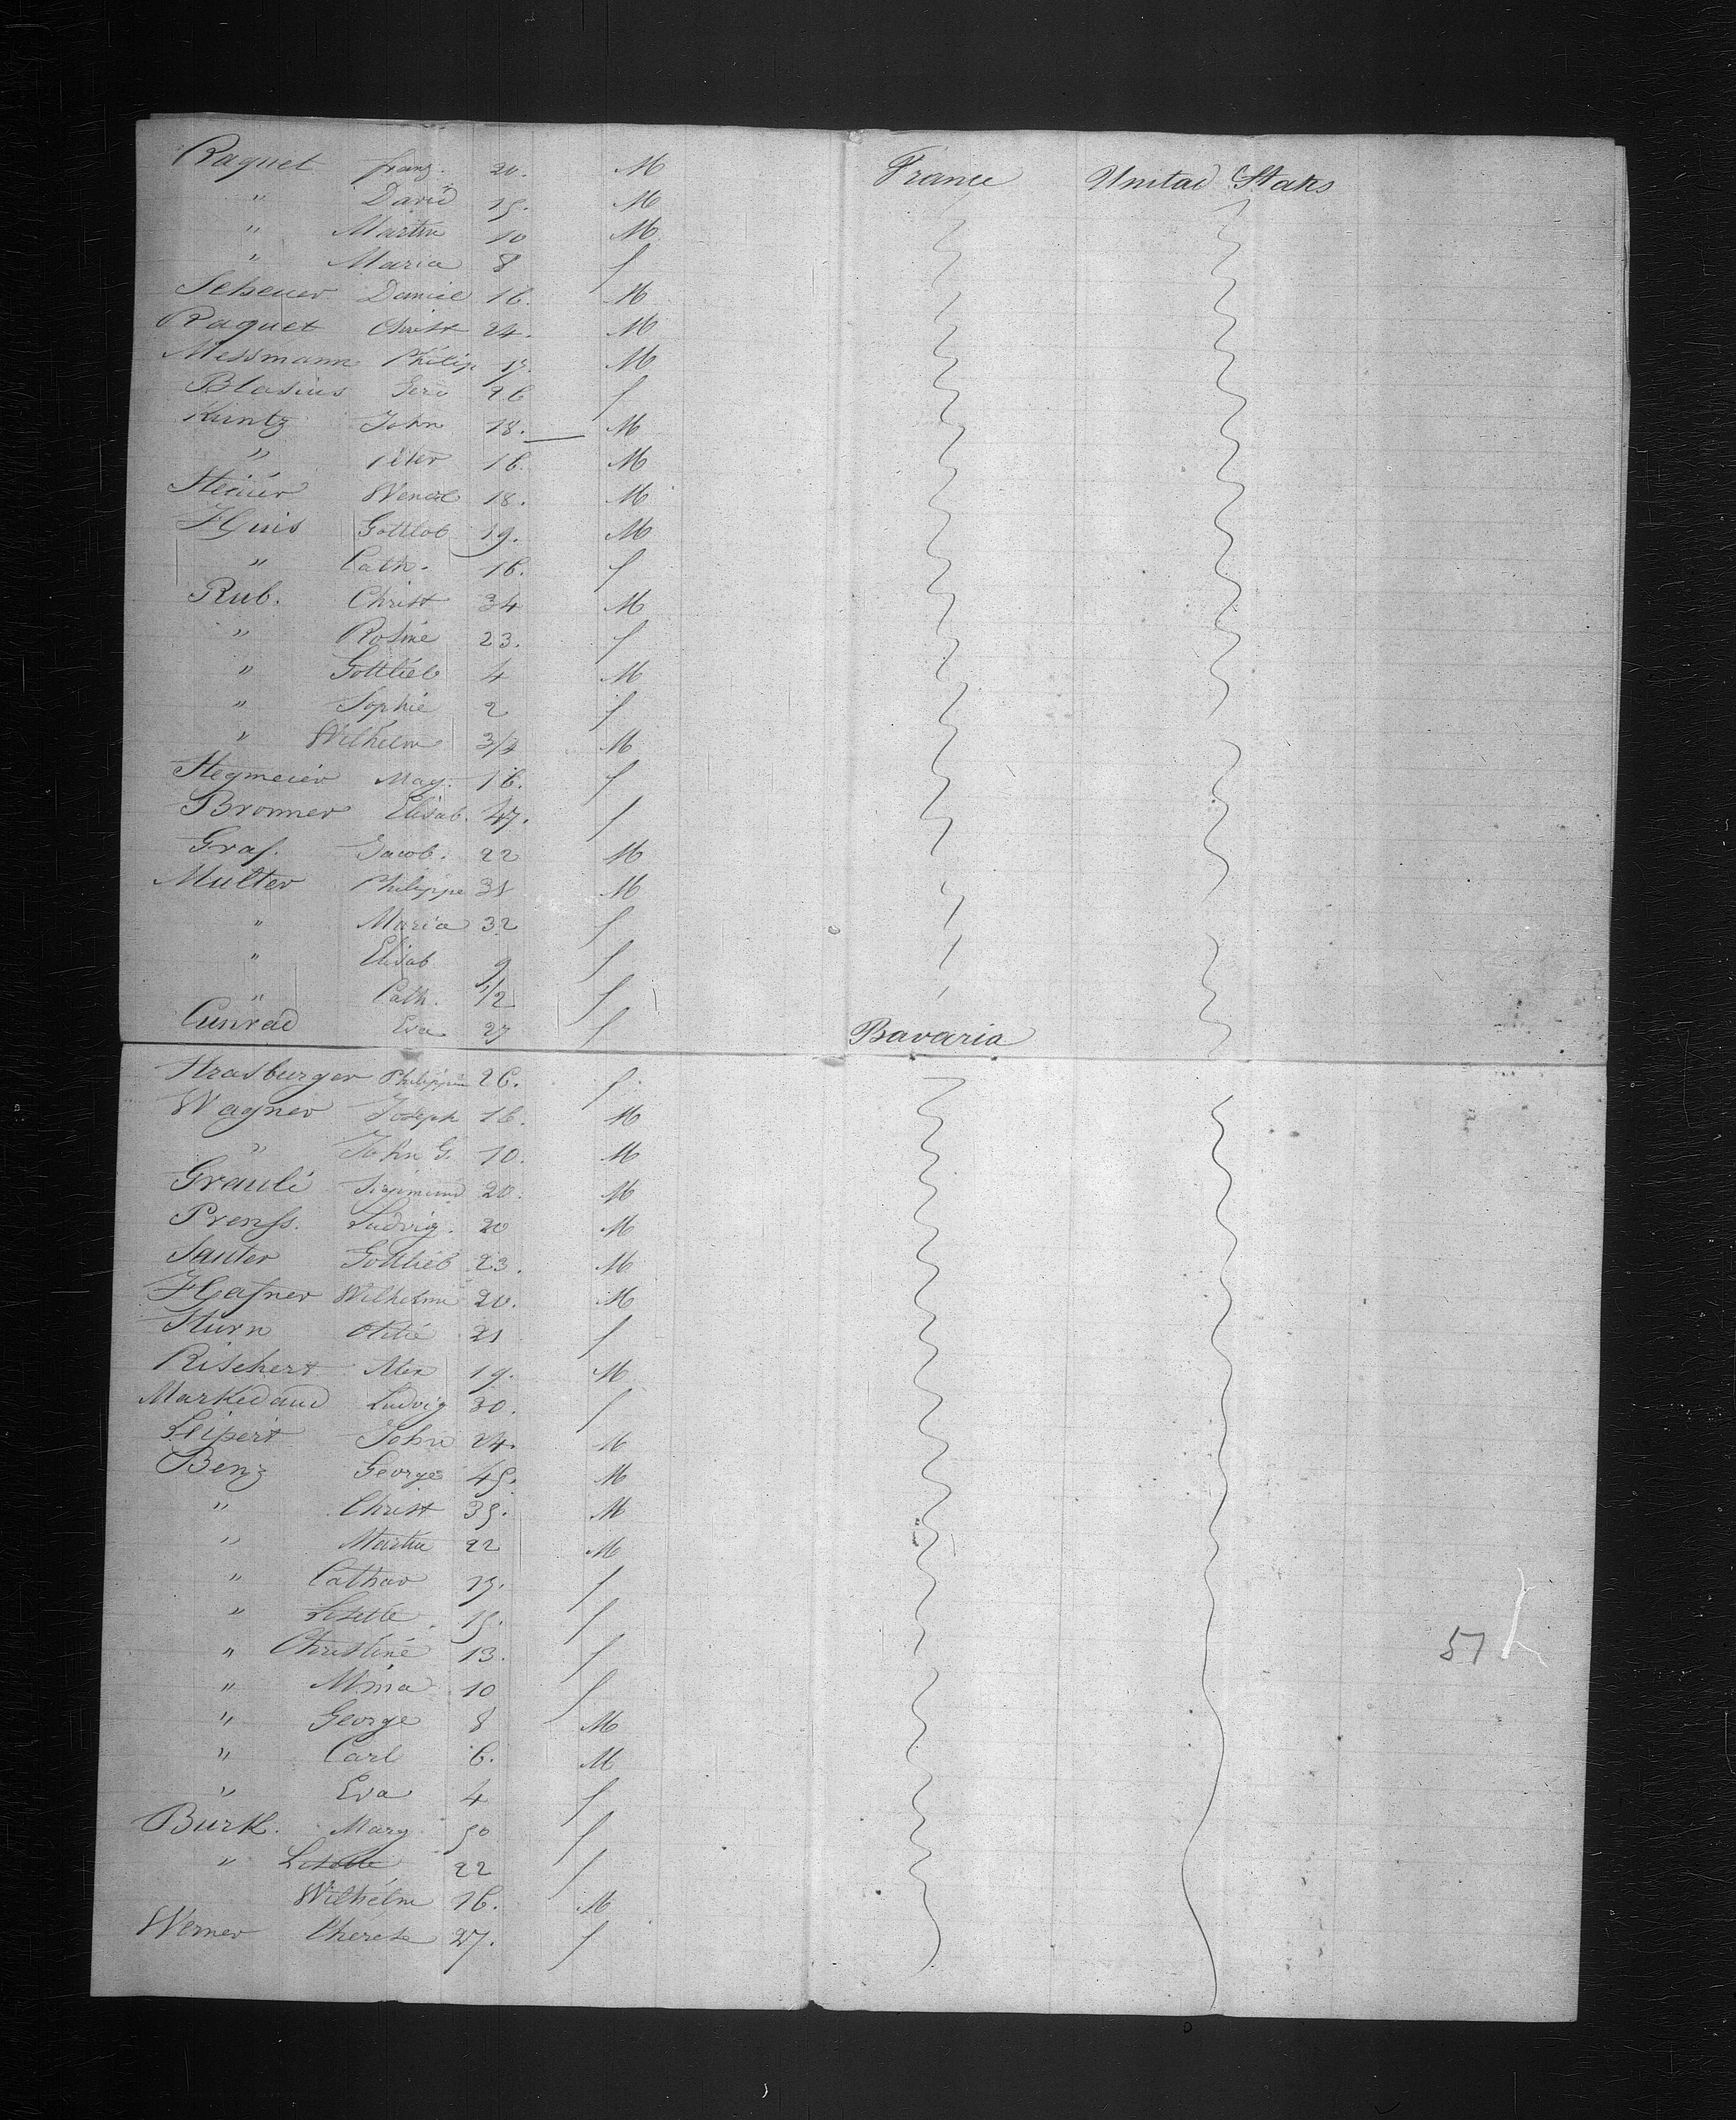 Raquet franz. 20. M France United States
" David 15. M
" Martin 10 M
" Maria 8 f
Scheuer Daniel 16. M
Raquet Christ 24. M
Messmann Philip 17. M
Blasius 26 f
Kuntz John 18. M
" Peter 16. M
Steiner Wendel 18. M
Heuis Gottlob 19. M
" Cath. 16. f
Rub. Christ 34 M
" Rosine 23. f
" Gottlieb 4 M
" Sophie 2 f
" Wilhelm 3/4 M
Hegmeier Mag. 16. f
Bronner Elisab. 47. f
Graf. Jacob. 22 M
Multer Philippe 31 M
" Maria 32 f
" Elisab 9 f
" Cath. 1/2 f
Cunrad Eva 27 f Bavaria
Strasburger Philippin 26. f.
Wagner Joseph 16. M
" John G. 10. M
Grauli Sigimund 20. M
Prenss. Ludvig. 20 M
Sauter Gottlieb 23. M
Hafner Wilhelm 20. M
Sturn Otilie 21 f
Rischert Alex 19. M
Markedaud Ludvig 30. f
Seipert John 24. M
Benz George 45. M
" Christ 35. M
" Martin 22 M
" Cathar 17. f
" Lisette 15. f
" Christine 13. f
" Mina 10 f
" George 8 M
" Carl 6. M
" Eva 4 f
Burk. Mary 50 f
" Lisette 22 f
Wilhelm 16. M
Werner Therese 27. f
51